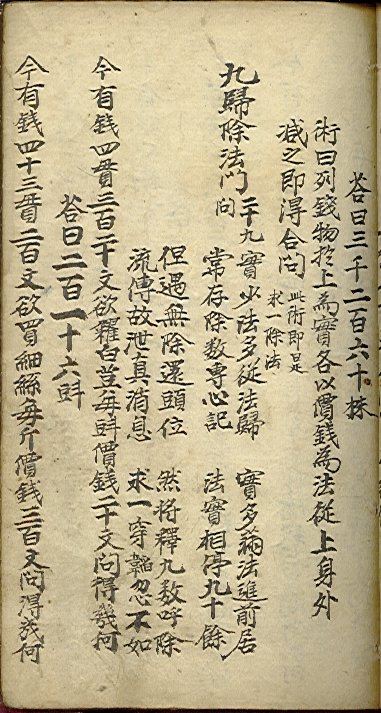 荅曰三千二百六十株
術曰列錢物於上為實各以價錢為法從上身外
減之即得合問 此術即是
求一除法
九歸除法門 二十九
問
實少法多從法歸 實多滿法進前居
常存除數專心記 法實相停九十餘
但遇無除還頭位 然將釋九數呼除
流傳故泄真消息 求一穿韜忽不如
今有錢四貫三百二十文欲糴白荳每㪷價錢二十文問得幾何
荅曰二百一十六㪷
今有錢四十三貫二百文欲買細絲每斤價錢三百文問得幾何